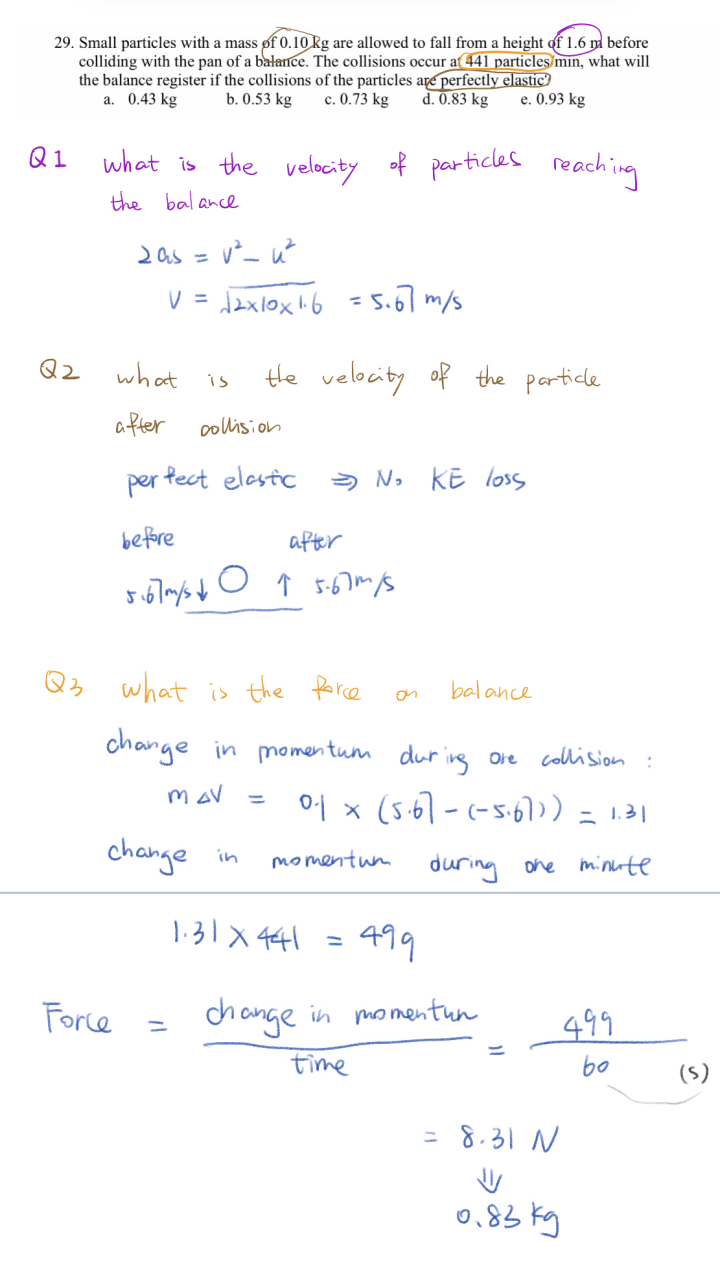 29. Small particles with a mass of 0.10 kg are allowed to fall from a height of 1.6 m before
colliding with the pan of a balance. The collisions occur at 441 particles/min, what will
the balance register if the collisions of the particles are perfectly elastic?
a. 0.43 kg b. 0.53 kg c. 0.73 kg d. 0.83 kg e. 0.93 kg
Q1 what is the velocity of particles reaching
the balance
2as = v² - u²
V = √2x10x1.6 = 5.67 m/s
Q2 what is the velocity of the particle
after collision
perfect elastic ⇒ No KE loss
before after
5.67m/s ↓ ↑ 5.67m/s
Q3 what is the force on balance
change in momentum during one collision :
m△V = 0.1 x (5.67-(-5.67)) = 1.31
change in momentum during one minute
1.31 X 441 = 499
Force = change in momentum / time = 499 / 60 (s)
= 8.31 N
⇓
0.83 kg